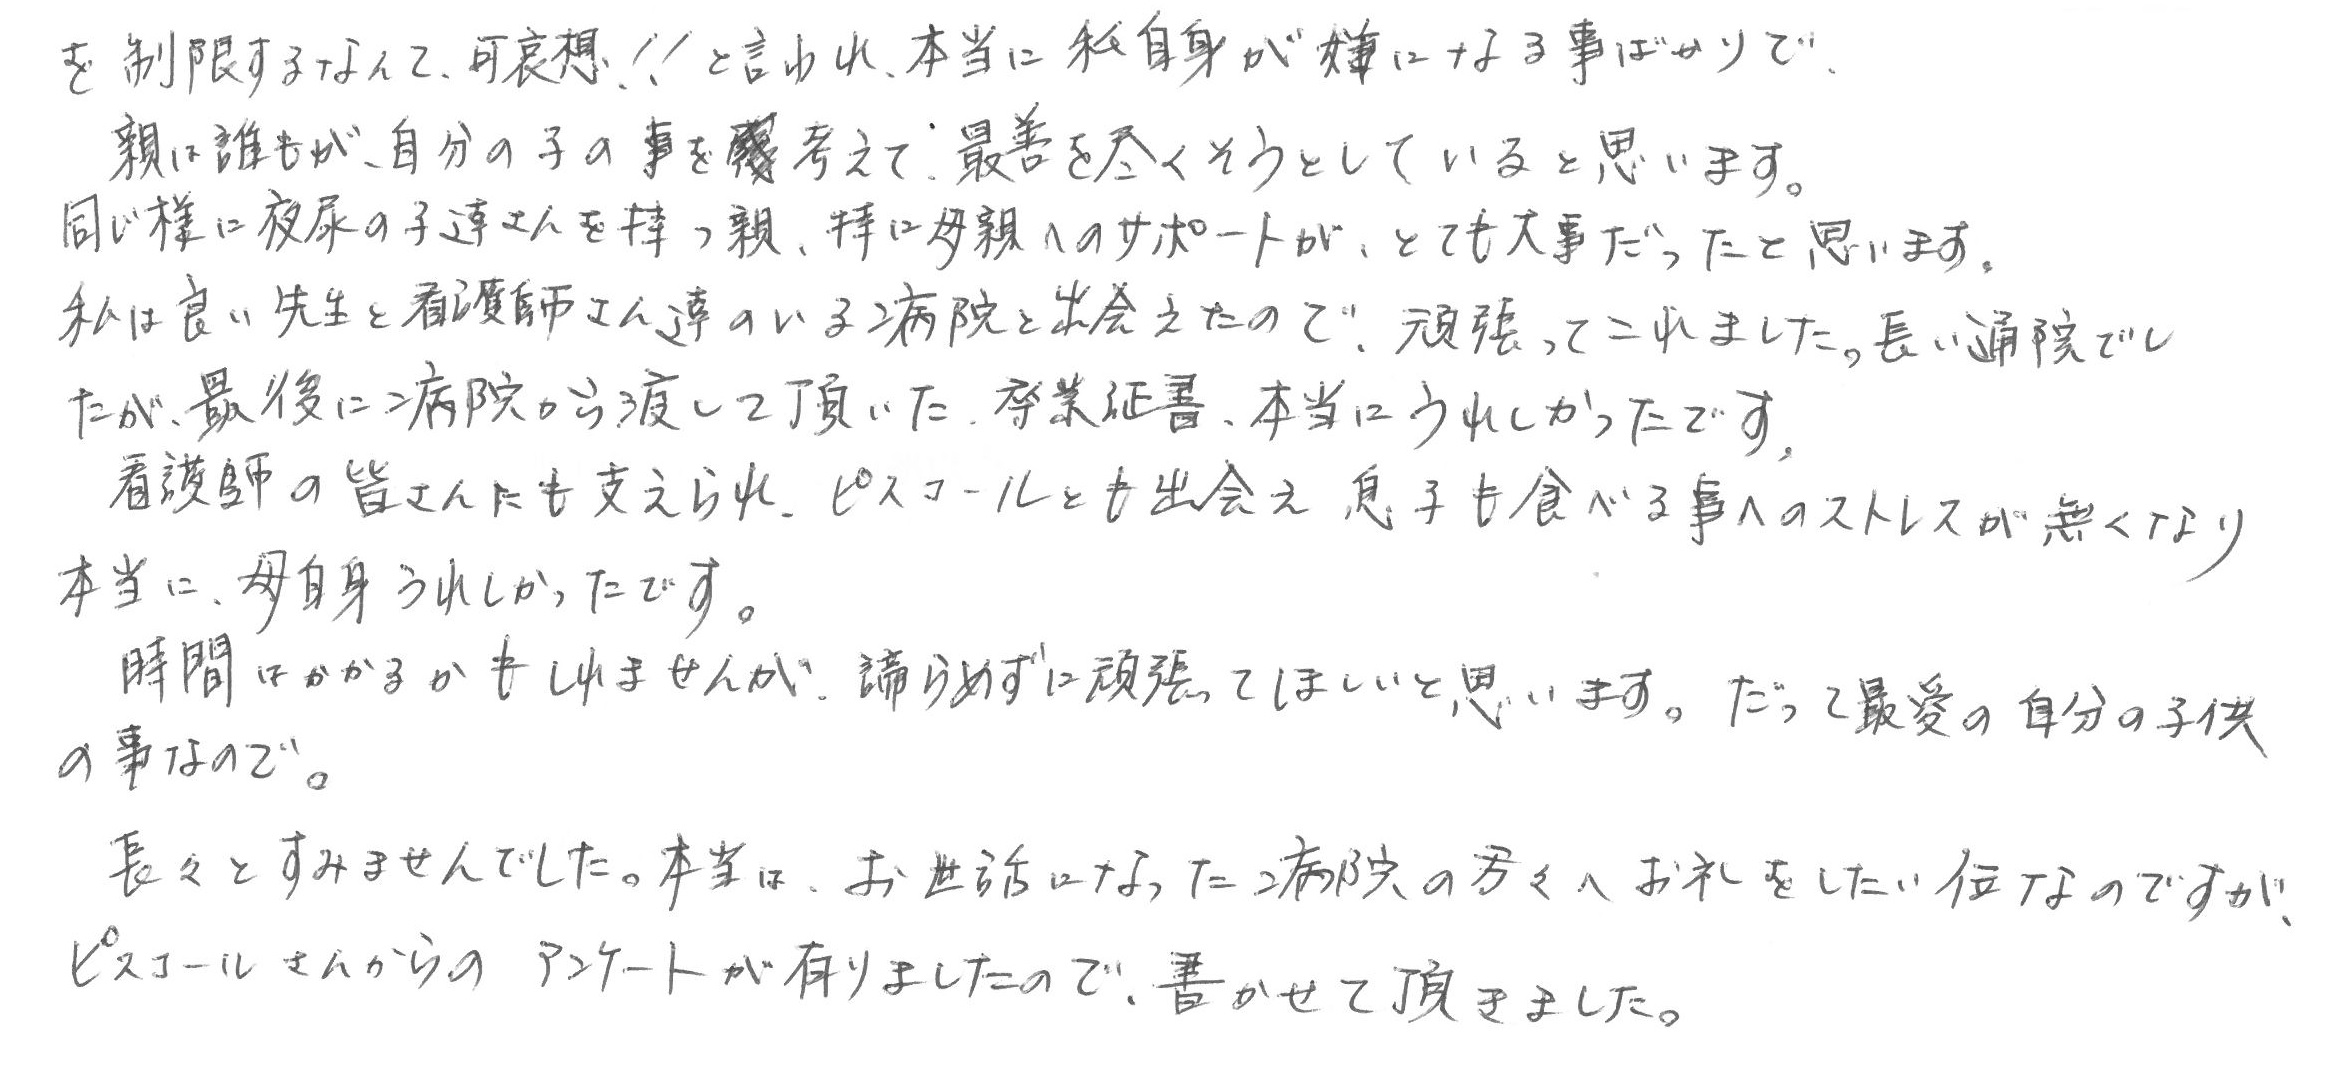 を制限するなんて、可哀想!!と言われ、本当に私自身が嫌になる事ばかりで、
親は誰もが、自分の子の事を考えて、最善を尽くそうとしていると思います。
同じ様に夜尿の子達さんを持つ親、特に母親へのサポートが、とても大事だったと思います。
私は良い先生と看護師さん達のいる病院と出会えたので、頑張ってこれました。長い通院でし
たが、最後に病院から渡して頂いた、卒業証書、本当にうれしかったです。
看護師の皆さんにも支えられ、ピスコールとも出会え 息子も食べる事へのストレスが無くなり
本当に、母自身うれしかったです。
時間はかかるかもしれませんが、諦らめずに頑張ってほしいと思います。だって最愛の自分の子供
の事なので。
長々とすみませんでした。本当は、お世話になった病院の方々へお礼をしたい位なのですが、
ピスコールさんからの アンケートが有りましたので、書かせて頂きました。